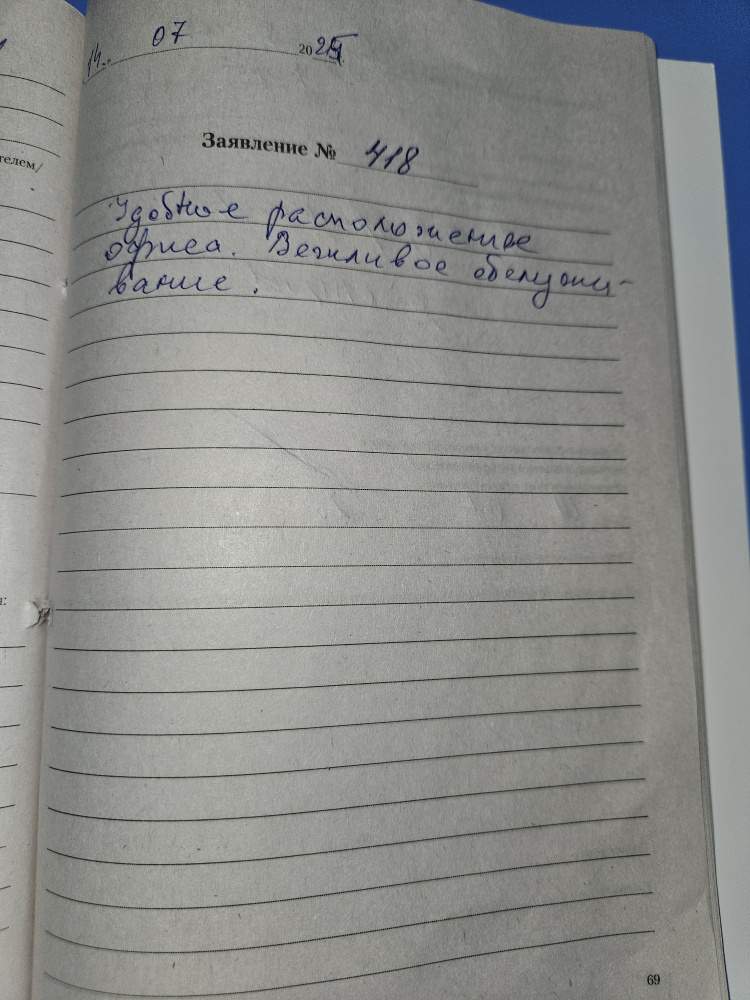 14. 07 2025
Заявление № 418
Удобное расположение
офиса. Вежливое обслужи-
вание.
телем/
69